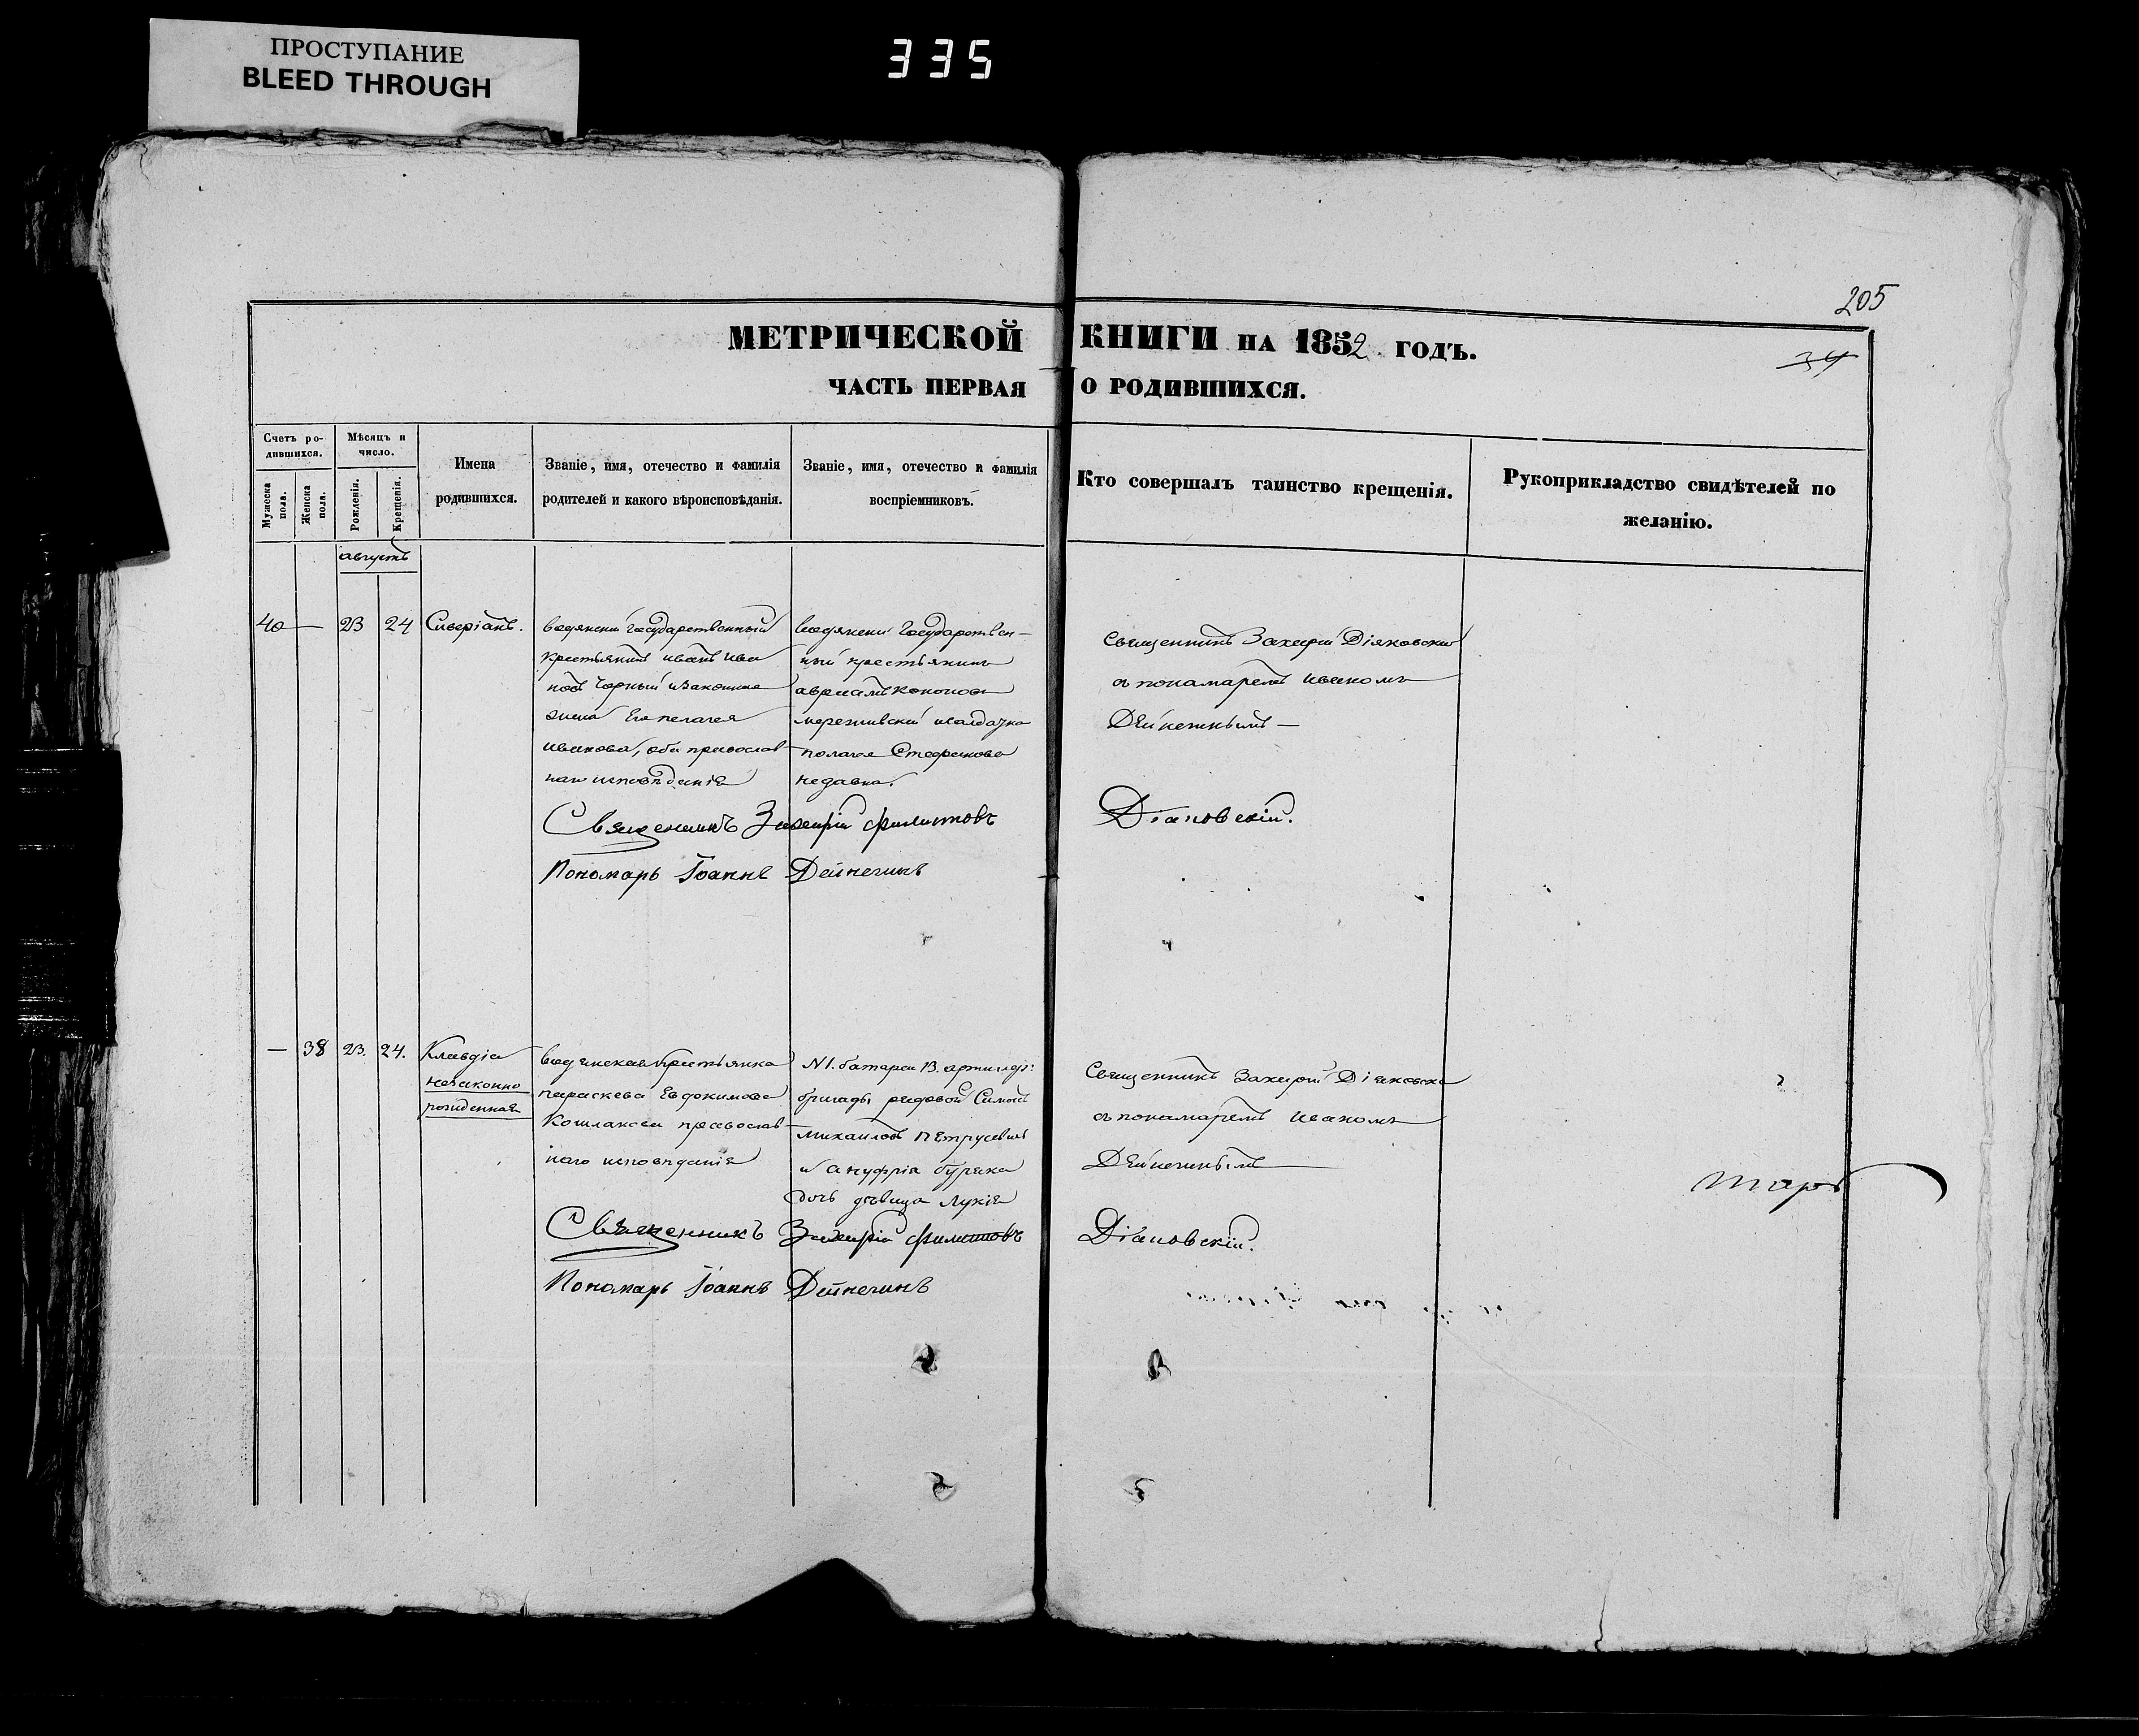 ПРОСТУПАНИЕ
BLEED THROUGH
335
205
МЕТРИЧЕСКОЙ КНИГИ НА 1852 ГОДЪ.
34
ЧАСТЬ ПЕРВАЯ О РОДИВШИХСЯ.
Счетъ ро-
дившихся.
Мужеска пола.
Женска пола.
Мѣсяцъ и
число.
Рожденія.
Крещенія.
Имена
родившихся.
Званіе, имя, отечество и фамилія
родителей и какого вѣроисповѣданія.
Званіе, имя, отечество и фамилія
воспріемниковъ.
Кто совершалъ таинство крещенія.
Рукоприкладство свидѣтелей по
желанію.
августъ
40 — 23 24 Сиверіанъ.
водянскій государственный
крестьянинъ иванъ ива
новъ Чорный и законная
жена Его пелагея
иванова, оба православ-
наго исповѣданія
водянскій государствен-
ный крестьянинъ
авраамъ кононовъ
полагея Стефанова
Священникъ Захарій Діяковскій
съ понамаремъ иваномъ
Дейнекинымъ —
Священникъ Захарій Филиповъ Діаковскій.
Пономарь Іоаннъ Дейнекинъ
— 38 23. 24. Клавдія
незаконно
рожденная
водянская крестьянка
параскева Евдокимова
православ-
наго исповѣданія
N1. батареи 13. артилер:
бригады рядовой Симонъ
михаиловъ Петрусевичъ
и ануфрія буряка
дочь дѣвица Лукія
Священникъ Захарій Діяковскій
съ понамаремъ иваномъ
Дейнекинымъ —
Священникъ Захарій Филиповъ Діаковскій.
Пономарь Іоаннъ Дейнекинъ
тарь